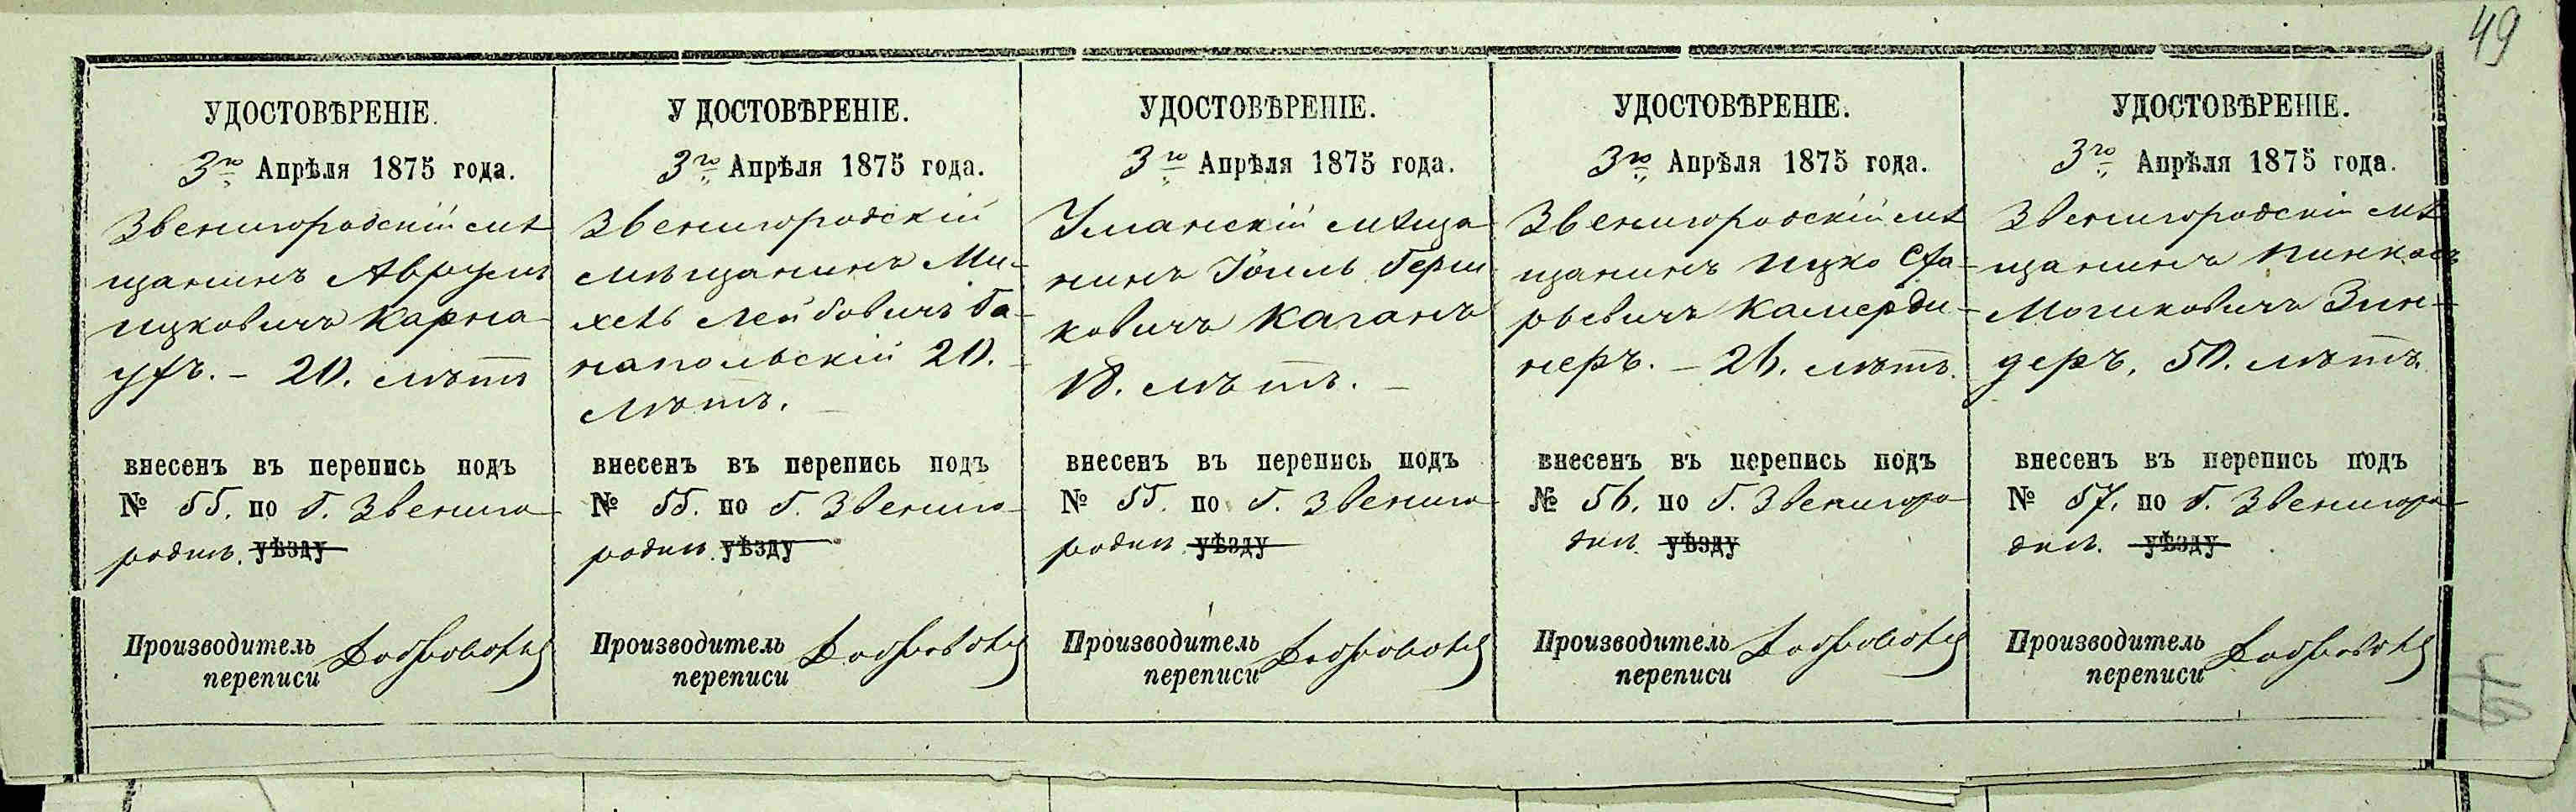 49
УДОСТОВѢРЕНІЕ.
3го Апрѣля 1875 года.
Звенигородскій мѣ
щанинъ Аврумъ
Ицковичъ Карна
ухъ. – 20. лѣтъ
внесенъ въ перепись подъ
№ 55. по г. Звениго
родкѣ. уѣзду
Производитель
переписи
УДОСТОВѢРЕНІЕ.
3го Апрѣля 1875 года.
Звенигородскій
мѣщанинъ Ми-
хель Лейбовичъ Га-
напольскій 20.
лѣтъ. –
внесенъ въ перепись подъ
№ 55. по г. Звениго-
родкѣ. уѣзду
Производитель
переписи
УДОСТОВѢРЕНІЕ.
3го Апрѣля 1875 года.
Уманскій мѣща
нинъ Іоиль Герш
ковичъ Каганъ
18. лѣтъ. –
внесенъ въ перепись подъ
№ 55. по г. Звениго
родкѣ уѣзду
Производитель
переписи
УДОСТОВѢРЕНІЕ.
3го Апрѣля 1875 года.
Звенигородскій мѣ
щанинъ Ицко
рьевичъ Камерди-
неръ. – 26. лѣтъ.
внесенъ въ перепись подъ
№ 56. по г. Звенигоро
дкѣ. уѣзду
Производитель
переписи
УДОСТОВѢРЕНІЕ.
3го Апрѣля 1875 года.
Звенигородскій мѣ
щанинъ Пинкасъ
Мошковичъ Зин-
деръ, 50. лѣтъ.
внесенъ въ перепись подъ
№ 57. по г. Звенигоро
дкѣ. уѣзду
Производитель
переписи